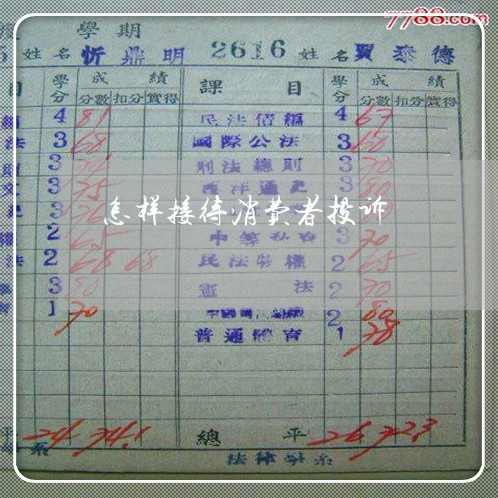 7788.com
學期
姓名 忻鼎明 2616 姓名 賈泰德
目 學分 成績 課目 學分 成績
分數 扣分 實得 分數 扣分 實得
4 81 民法債編 4 67
法 3 68 國際公法 3 60
3 刑法總則 3 70
3 75 西洋通史 3 80
3
怎样接待消费者投诉
2 65 中等 3 70
法 2 68 68 民法物權 2 65
3 80 憲法 2 70
1 70 2 80
普通體育 1 78
平 24 74.1 總平 26 72.3
系 法律學系